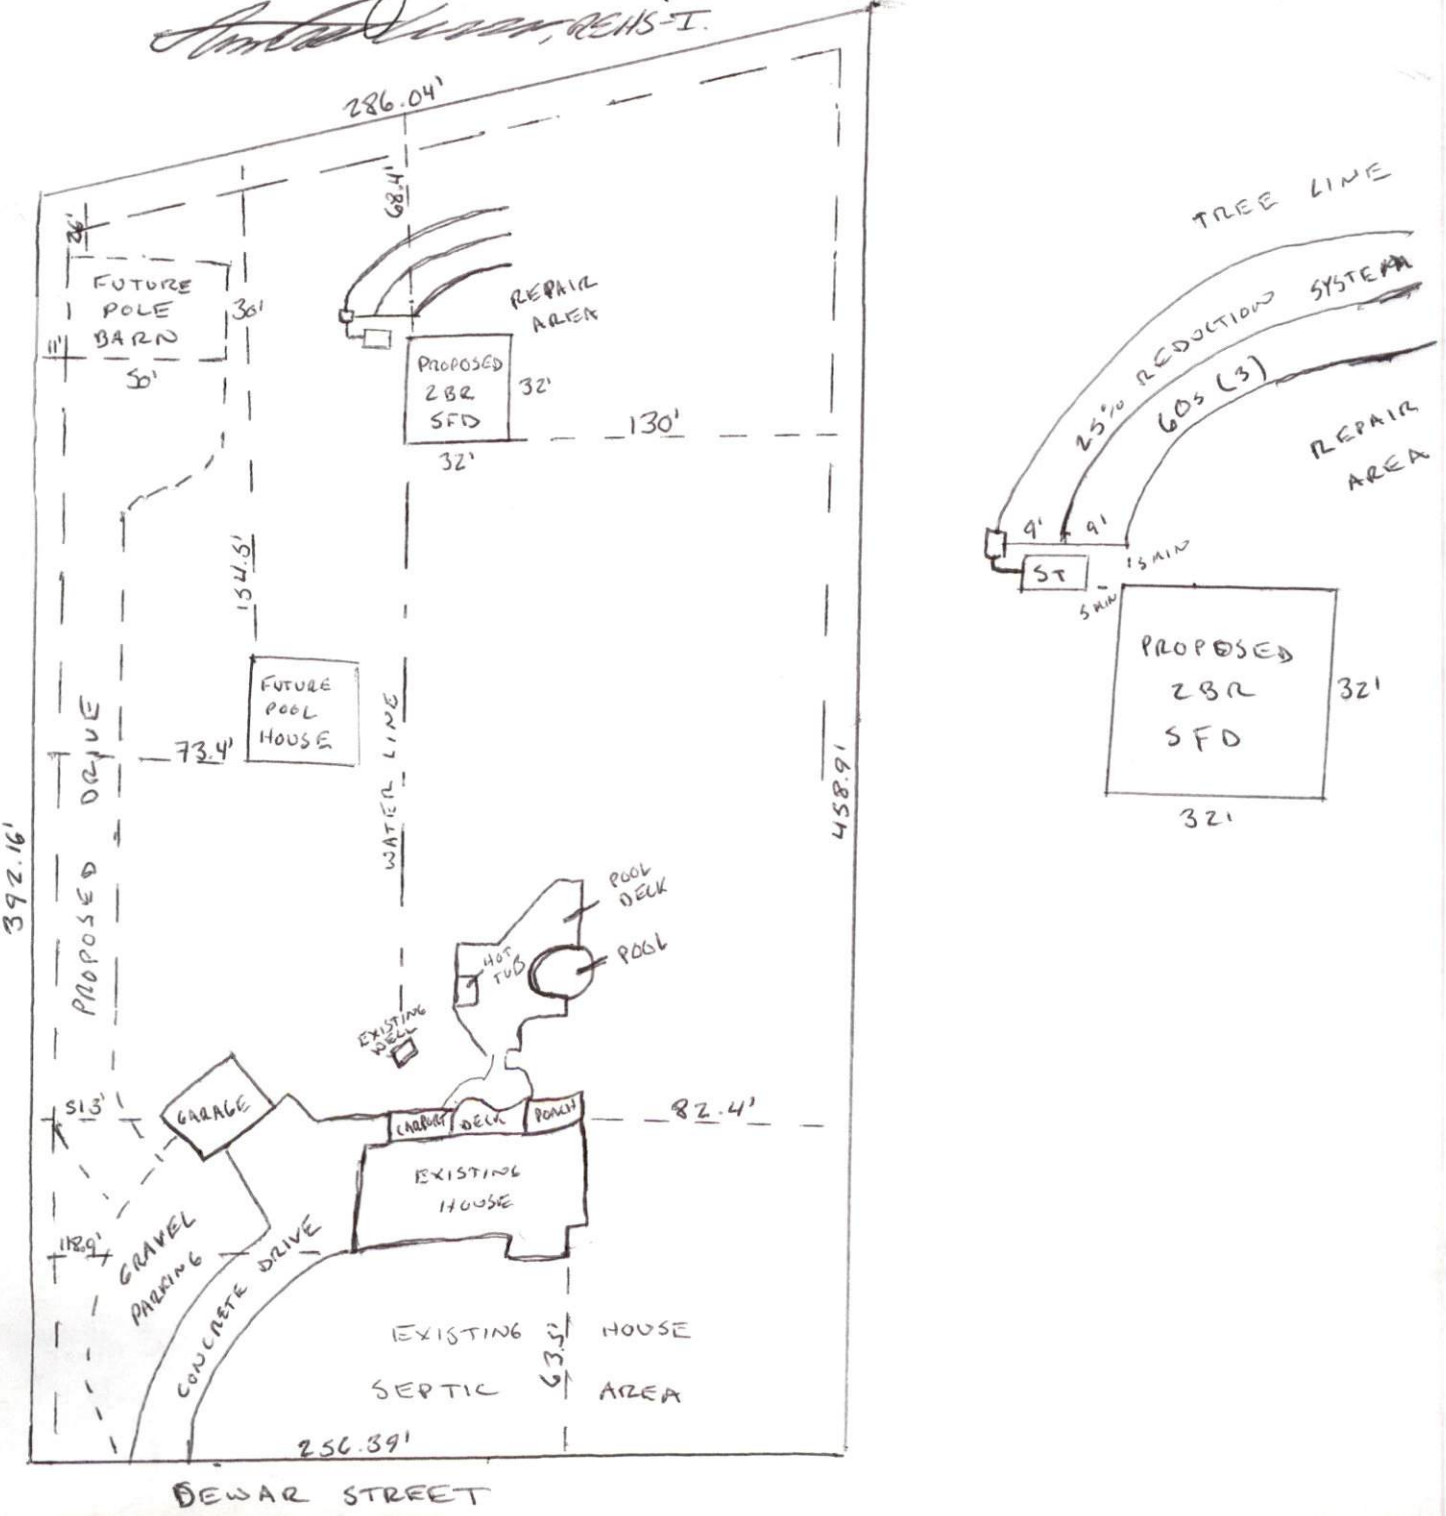 REHS-I.
286.04'
26'
68.4'
FUTURE
POLE
BARN
30'
11'
50'
REPAIR
AREA
PROPOSED
2BR
SFD
32'
32'
130'
154.5'
FUTURE
POOL
HOUSE
73.4'
PROPOSED DRIVE
WATER LINE
392.16'
458.91
POOL
DECK
HOT
TUB
POOL
EXISTING
WELL
51.3'
GARAGE
CARPORT
DECK
PORCH
82.4'
EXISTING
HOUSE
GRAVEL
PARKING
CONCRETE DRIVE
EXISTING HOUSE
SEPTIC AREA
63.5'
256.39'
DEWAR STREET
TREE LINE
25% REDUCTION SYSTEM
60s (3)
REPAIR
AREA
9' 9'
ST
15 MIN
5 MIN
PROPOSED
2BR
SFD
32'
32'